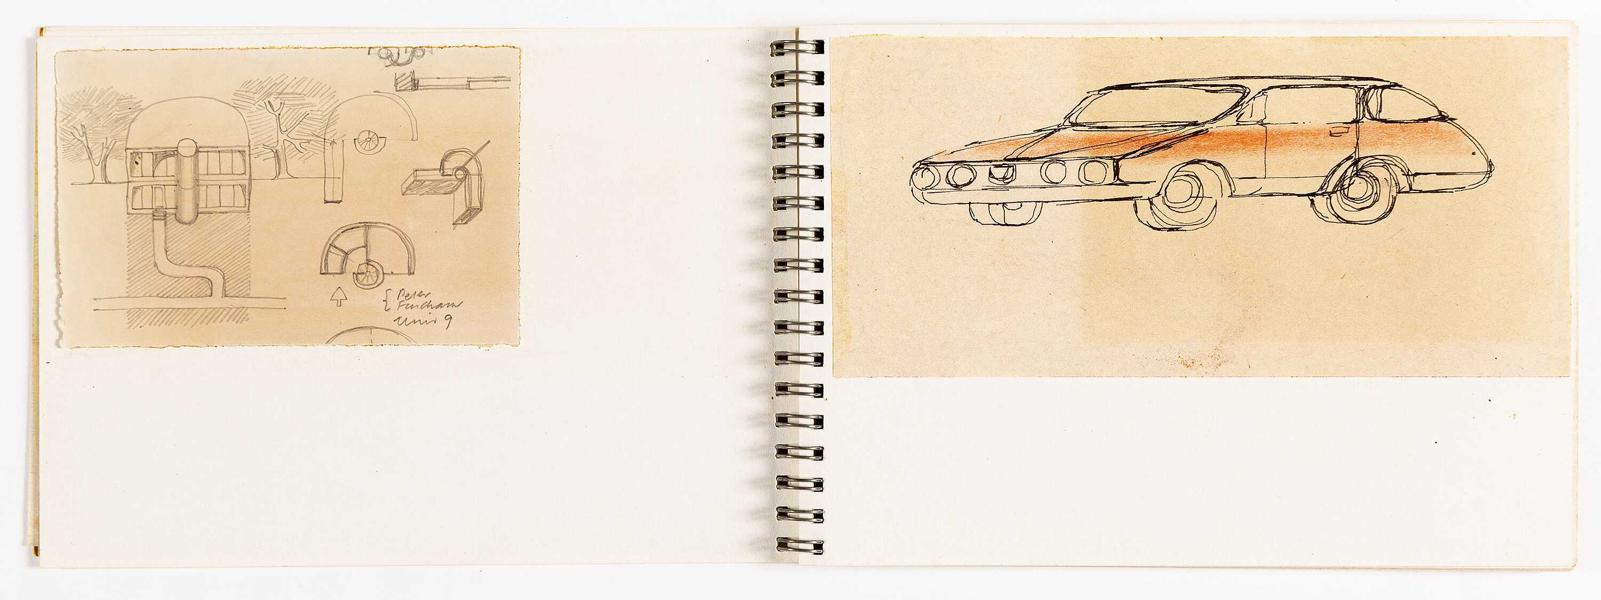 { Peter
Fincham
Unit 9